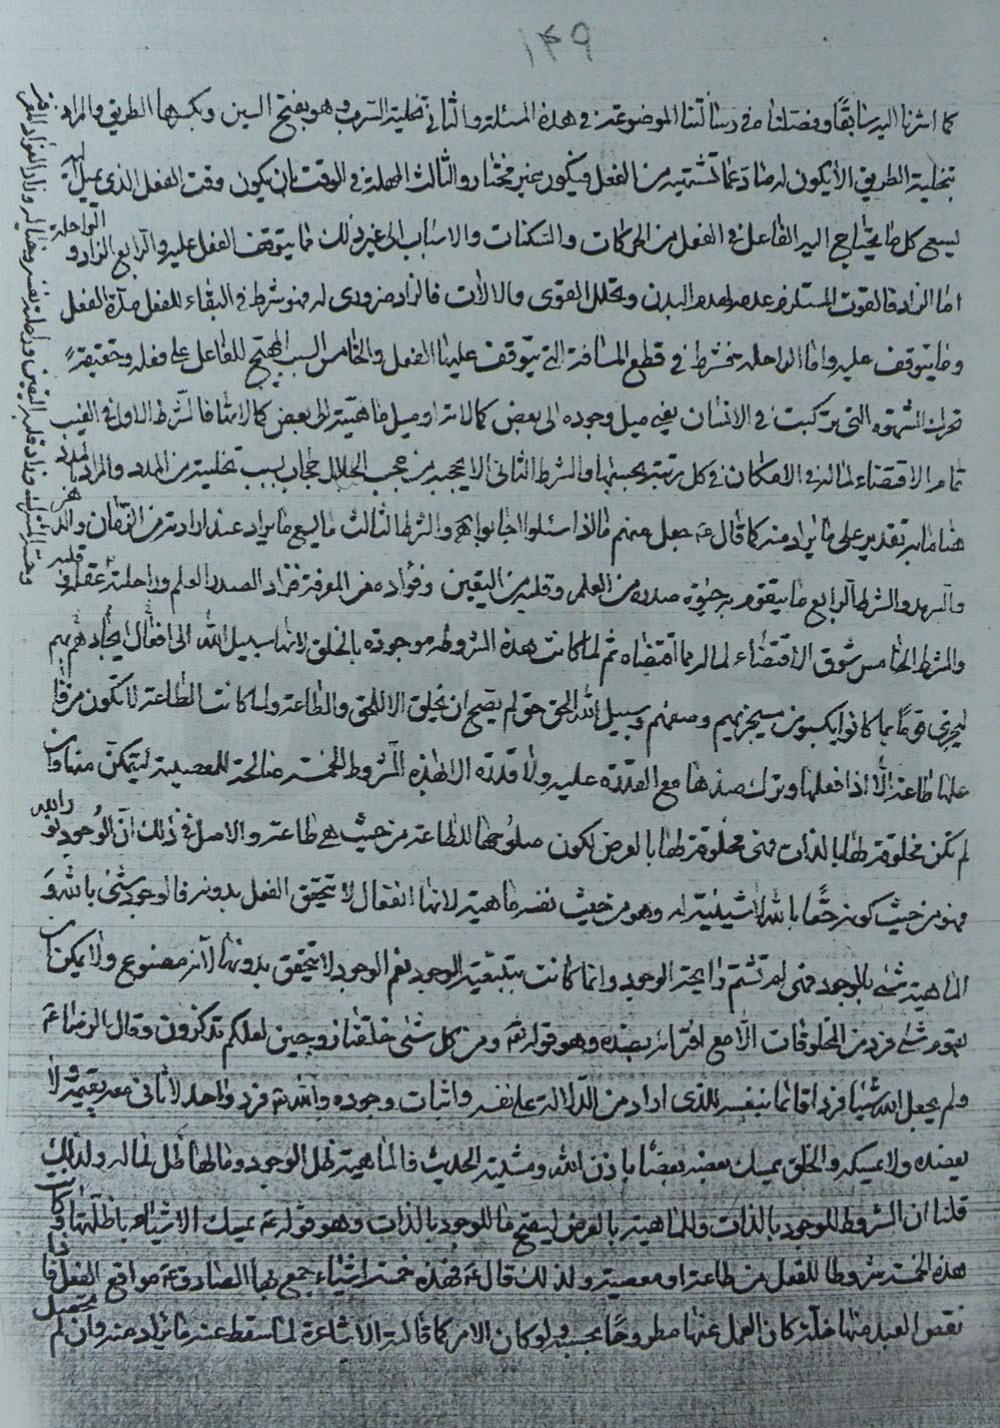 ١٤٩
كما اشرنا اليه سابقًا وفصلناه في رسالتنا الموضوعة في هذه المسئلة والثاني تخلية السرب وهو بفتح السين وبكسرها الطريق والمراد
بتخلية الطريق الا يكون له صادّ عما تشتهيه من الفعل فيكون غير مختار والثالث المهلة في الوقت بان يكون وقت الفعل الذي يميل اليه
ليسع كل ما يحتاج اليه الفاعل في الفعل من الحركات والسكنات والاسباب الى غير ذلك مما يتوقف الفعل عليه والرابع الزاد و الراحلة
اما الزاد فالقوت المستلزم عدمه لهدم البدن وتحلل القوى والالات فالزاد ضروري له فهو شرط في البقاء للفعل مدّة الفعل
وما يتوقف عليه واما الراحلة فشرط في قطع المسافة التي يتوقف عليها الفعل والخامس السبب المهيّج للفاعل على فعله وحقيقته
تحرك الشهوة التي تركبت في الانسان يعني ميل وجوده الى بعض كمالاته او ميل ماهيّته الى بعض كمالاتها فالشرط الاول في الغيب
تمام الاقتضاء لما له في الامكان في كل رتبة بحسبها والشرط الثاني الا يحجبه من حجب الجلال حجاب بسبب تخلية من المدد والمراد بالمدد
هنا ما به تقديره على ما يراد منه كما قال ع جعل منهم ماذا سئلوا اجابوا به والشرط الثالث ما يسع ما يراد عند ارادته من الزمان والدهر
والسرمد والشرط الرابع ما يتقوم به حيٰوة صدره من العلم وقلبه من اليقين وفؤاده من المعرفة فزاد الصدر العلم وراحلته عقله وقلبه
والشرط الخامس شوق الاقتضاء لما له مما اقتضاه ثم لما كانت هذه الشروط موجودة بالخلق لانها سبيل الله الى افعال ايجادهم بهم
ليجزي قومًا بما كانوا يكسبون سيجزيهم وصفهم وسبيل الله الحق حق لم يصح ان يخلق الا للحق والطاعة ولما كانت الطاعة لا تكون
علمًا طاعة الّا اذا فعلها وترك ضدها مع القدرة عليه ولا قدرة الا بهذه الشروط الخمسة صالحة للمعصية ليتمكن منها وان
لم تكن مخلوقة لها بالذات فهي مخلوقة لها بالعرض لكون صلوحها للطاعة من حيث هي طاعة والاصل في ذلك انّ الوجود بالله
فهو من حيث كونه حقًا بالله لا شيئيّة له وهو من حيث نفسه ماهية لانها انفعال لا يتحقق الفعل بدونه فالوجود شيء بالله و
الماهية شيء بالوجود فهي لم تشتم رايحة الوجود وانما كانت بتبعية الوجود نعم الوجود لا يتحقق بدونها لانه مصنوع ولا يمكن ان
يقوم شيء فرد من المخلوقات الّا مع اقترانه بضده وهو قوله تع ومن كل شيء خلقنا زوجين لعلكم تذكرون وقال الرضا ع
ولم يجعل الله شيئا فردا قائما بنفسه للذي اراد من الدّلالة على نفسه واثبات وجوده والله تع فرد واحد لا ثاني معه يقيمه ولا
يعضده ولا يمسكه والخلق يمسك بعضه بعضًا باذن الله ومشيته الحديث فالماهية ظل الوجود وما لها ظل لما له ولذلك
قلنا ان الشروط للوجود بالذات وللماهية بالعرض ليصح ما للوجود بالذات وهو قوله ع يمسك الاشياء باظلتها وكانت
هذه الخمسة شروطا للفعل من طاعة او معصية ولذلك قال ع فهذه خمسة اشياء جمع بها الصادق ع جوامع الفعل فاذا
نقص العبد منها خلّة كان العمل عنها مطروحًا بحسبه ولو كان الامر كما قالته الاشاعرة لما سقط عنه ما يراد منه وان لم يحصل